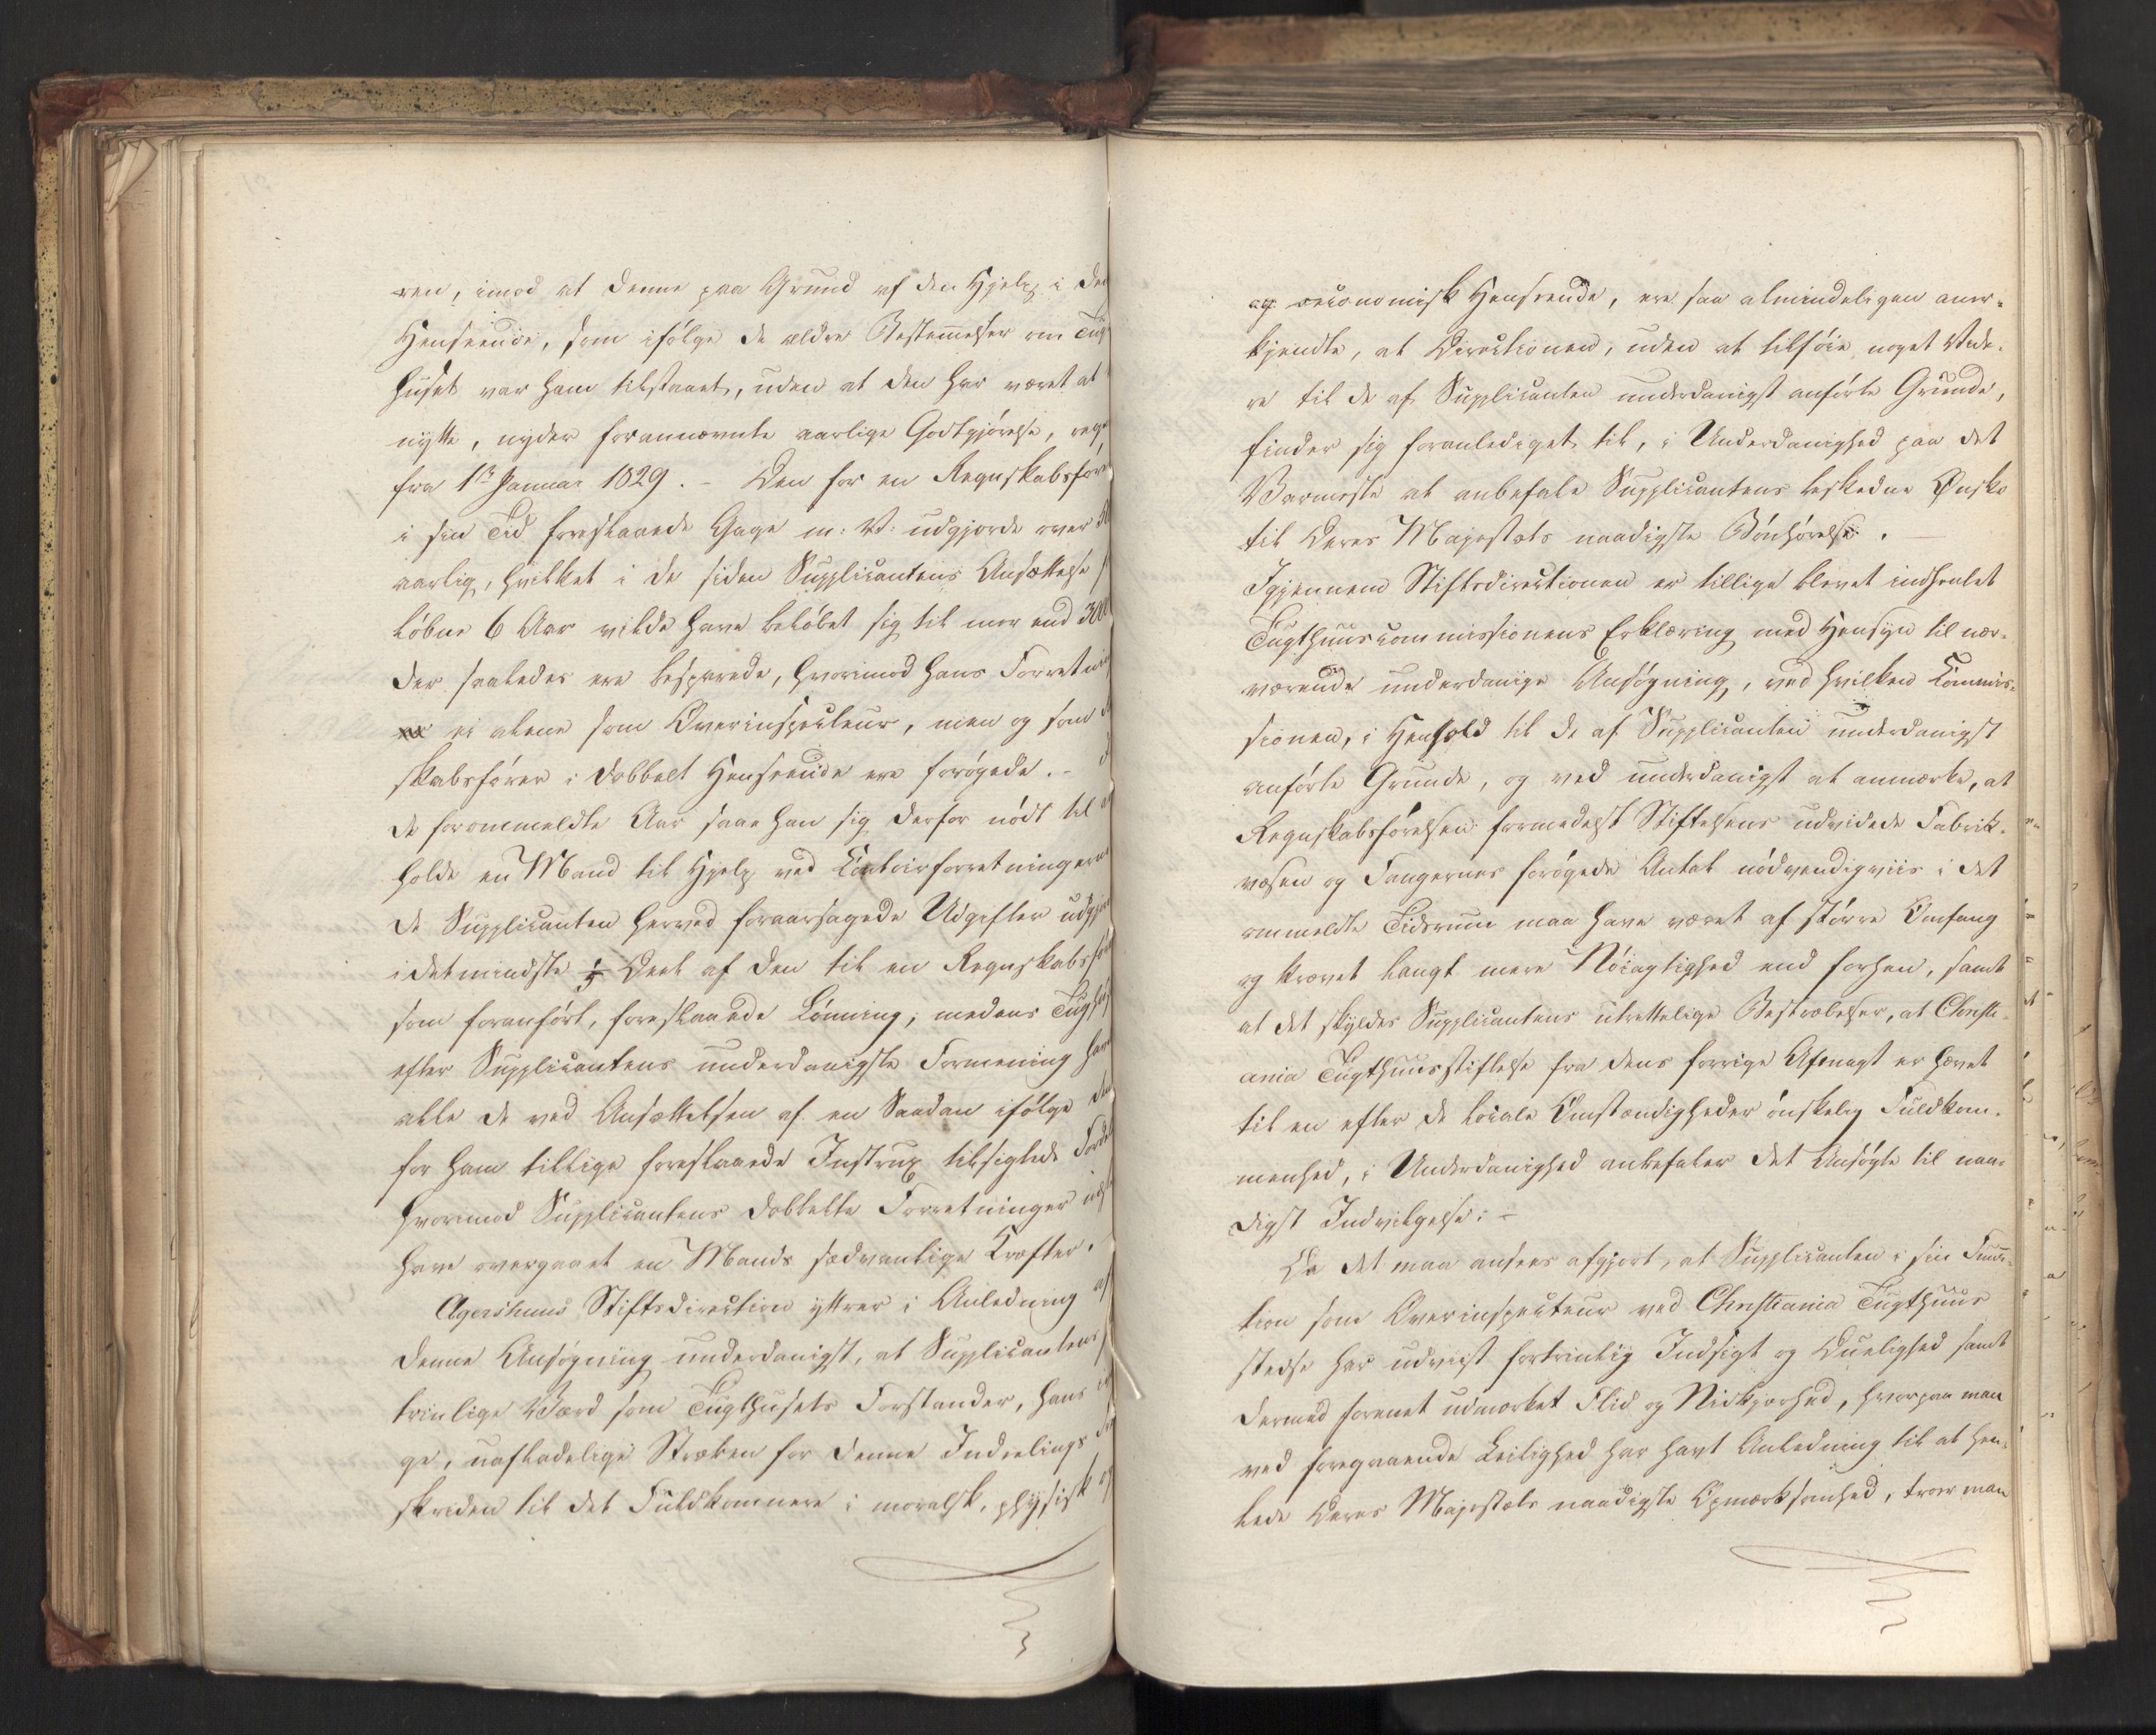 ren, imod at denne paa Grund af den Hjelp i den
Henseende, som ifølge de ældre Bestemmelser om Tugt
huset var ham tilstaaet, uden at den har været at
nytte, nyder forannævnte aarlige Godtgjørelse, regn
fra 1ste Januar 1829. – Den for en Regnskabsfører
i sin Tid foreslaaede Gage m: V: udgjorde over
aarlig, hvilket i de siden Supplicantens Ansættelse
løbne 6 Aar vilde have beløbet sig til mer end 300
der saaledes ere besparede, hvorimod hans Forretnin
ei alene som Overinspecteur, men og som
skabsfører i dobbelt Henseende ere forøgede. –
de forommeldte Aar saae han sig derfor nødt til
holde en Mand til Hjelp ved Contoirforretningerne
de Supplicanten herved foraarsagede Udgifter udgjør
i det mindste Deel af den til en Regnskabsfør
som foranført, foreslaaede Lønning, medens Tugth
efter Supplicantens underdanigste Formening hav
alle de ved Ansættelsen af en Saadan ifølge den
for ham tillige foreslaaede Instrux tilsigtede Fordel
hvorimod Supplicantens dobbelte Forretninger
have overgaaet en Mands sædvanlige Kræfter.
Agershuus Stiftsdirection yttrer i Anledning af
denne Ansøgning underdanigst, at Supplicantens
trinlige Værd som Tugthusets Forstander, hans
ge, uafladelige Stræben for denne Indretnings
skriden til det Fuldkomnere i moralsk, physisk og
og oeconomisk Henseende, ere saa almindeligen aner-
kjendte, at Directionen, uden at tilføie noget Vide-
re til de af Supplicanten underdanigst anførte Grunde,
finder sig foranlediget til, i Underdanighed paa det
Varmeste at anbefale Supplicantens beskedne Ønske
til Deres Majestæts naadigste Bønhørelse.
Igjennem Stiftsdirectionen er tillige blevet indhentet
Tugthuuscommissionens Erklæring med Hensyn til nær-
værende underdanige Ansøgning, ved hvilken Commis-
sionen, i Henhold til de af Supplicanten underdanigst
anførte Grunde, og ved underdanigst at anmærke, at
Regnskabsførelsen formedelst Stiftelsens udvidede Fabrik-
væsen og Fangernes forøgede Antal nødvendigviis i det
ommeldte Tidsrum maa have været af større Omfang
og krævet langt mere Nøiagtighed end forhen, samt
at det skyldes Supplicantens utrættelige Bestræbelser, at Christi-
ania Tugthuusstiftelse fra dens forrige Afmagt er hævet
til en efter de locale Omstændigheder ønskelig Fuldkom-
menhed, i Underdanighed anbefaler det Ansøgte til naa-
digst Indvilgelse: –
Da det maa ansees afgjort, at Supplicanten i sin Func-
tion som Overinspecteur ved Christiania Tugthuus
stedse har udviist fortrinlig Indsigt og Duelighed samt
dermed forenet udmærket Flid og Nidkjærhed, hvorpaa man
ved foregaaende Leilighed har havt Anledning til at hen-
lede Deres Majestæts naadigste Opmærksomhed, troer man